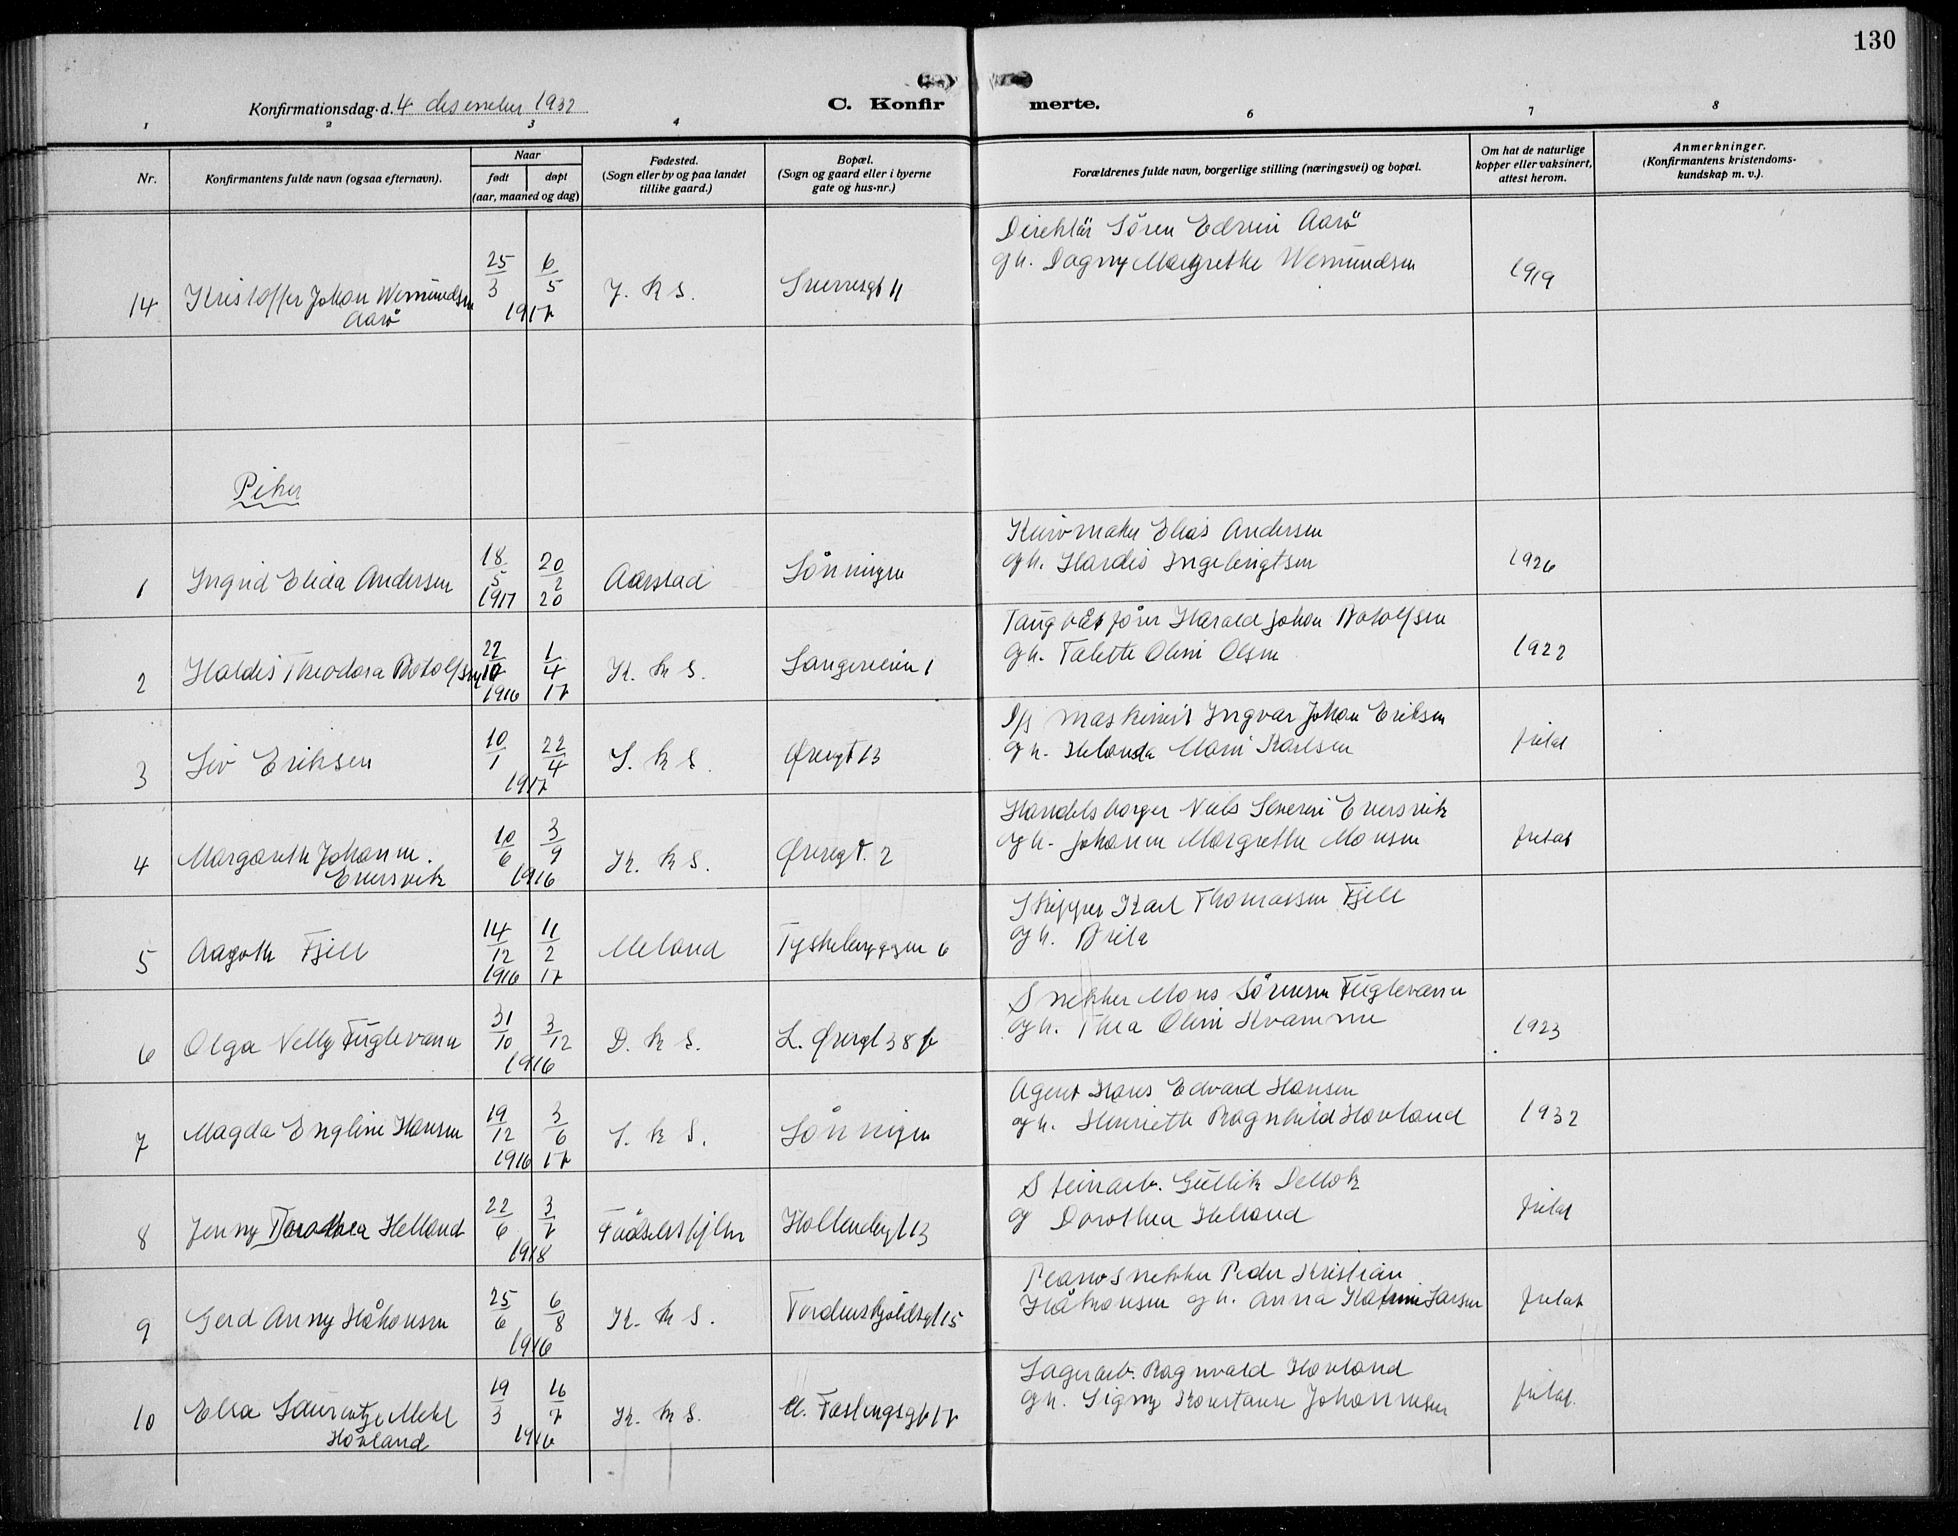 130
Konfirmationsdag d. 4 desember 1932
C. Konfirmerte.
1 2 3 4 6 7 8
Nr.
Konfirmantens fulde navn (ogsaa efternavn).
Naar
født
døpt
(aar, maaned og dag)
Fødested.
(Sogn eller by og paa landet
tillike gaard.)
Bopæl.
(Sogn og gaard eller i byerne
gate og hus-nr.)
Forældrenes fulde navn, borgerlige stilling (næringsvei) og bopæl.
Om hat de naturlige
kopper eller vaksinert,
attest herom.
Anmerkninger.
(Konfirmantens kristendoms-
kundskap m. v.).
Direktör Sören Edvin Aarö
14 Kristoffer Johan Wernundsen 25/3 6/5 J. K S. Sverresgt 11 og h. Dagny Margrethe Wernundsen 1919
Aarö 1917
Piker
Kurvmaker Elias Andersen
1 Ingrid Elida Andersen 18/5 1917 20/2 20 Aarstad Lönningen og h. Hardis Ingebrigtsen 1926
Taugbåtfører Harald Johan Botolfsen
2 Haldis Theodora Botolfsen 22/12 1916 1/4 17 K. K S. Sangerveien 1 og h. Talette Oline Olsen 1922
D/s maskinist Ingvar Johan Eriksen
3 Liv Eriksen 10/1 22/4 1917 S. K S. Øvregt 13 og h. Marie Karlsen fritat
Handelsborger Nils Severin Eversvik
4 Margareth Johanne 10/6 3/9 K. K S. Øvregt. 2 og h. Johanne Margrethe Monsen fritat
Eversvik 1916
Skipper Karl Thomassen Fjell
5 Aagoth Fjell 14/12 1916 11/2 17 Meland Tyskebryggen 6 og h. Brita
Snekker Mons Sörensen Fuglevann
6 Olga Nelly Fuglevann 31/10 3/12 1916 D. K S. L. Øvregt 38 og h. Thea Oline Kvamme 1923
Agent Hans Edvard Hansen
7 Magda Engline Hansen 19/12 1916 3/6 17 S. K S. Lönningen og h. Henriette Ragnhild Hovland 1932
Steinarb. Gullik Dellok
8 Jenny Dorothea Helland 22/6 3/7 1918 Födselshjem 13 og Dorothea Helland fritat
Pianosnekker Peder Kristian
9 Gerd Anny Håkonsen 25/6 6/8 1916 K. K S. Tordenskjoldsgt 15 Håkonsen og h. Anna Larsen fritat
Lagerarb. Ragnvald Hovland
10 Elsa Laurentze Mehl 19/3 16/7 K. K S. C. Fastingsgt 17 og h. Signy Konstanse Johannesen fritat.
Hovland 1916